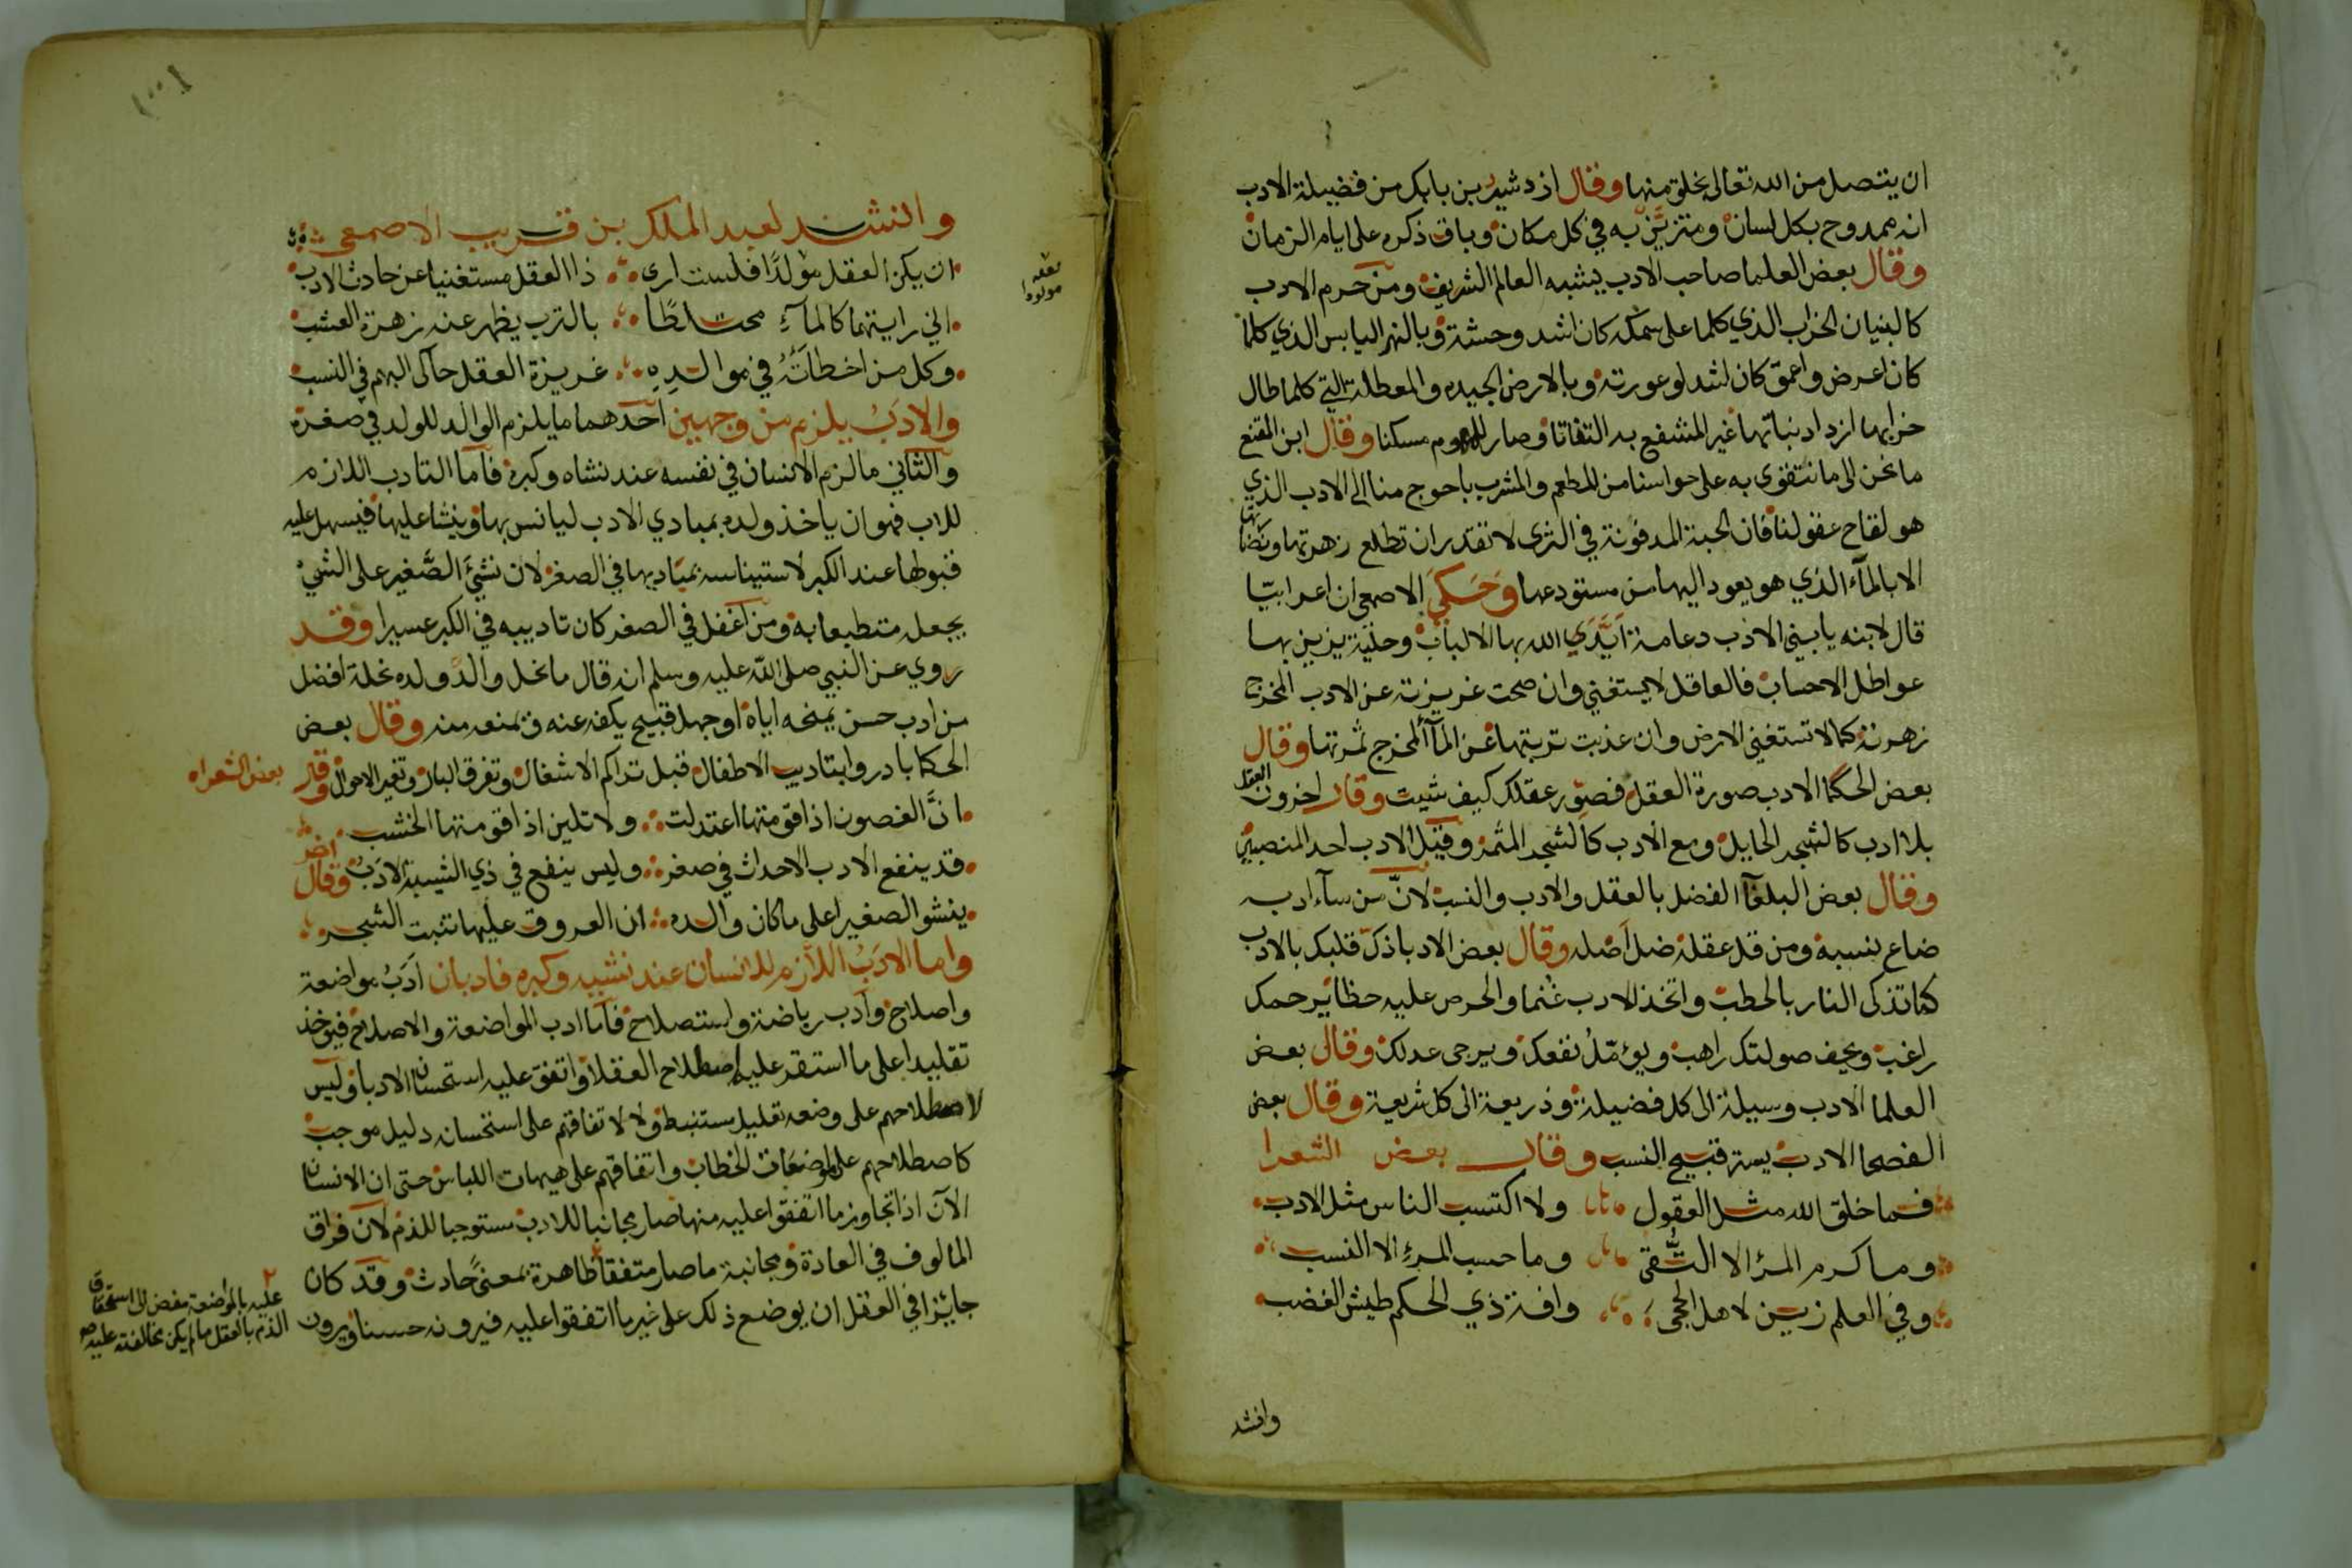 ان يتصل من الله تعالى بخلق منها وقال ازدشير بن بابك من فضيلة الادب
انه ممدوح بكل لسان ومتزين به في كل مكان وباق ذكره على ايام الزمان
وقال بعض العلما صاحب الادب يشبه العالم الشريف ومن حرم الادب
كالبنيان الخراب الذي كلما على سمكه كان اشد وحشة وبالنهر اليابس الذي كلما
كان اعرض واعمق كان اشد لوعورته وبالارض الجيده والمعطلة التي كلما طال
خرابها ازداد نباتها غير المنتفع به التفاتا وصار للهوم مسكنا وقال ابن المقنع
ما نحن الى ما نتقوى به على حواسنا من المطعم والمشرب باحوج منا الى الادب الذي
هو لقاح عقولنا فان الحبة المدفونة في الثرى لا تقدر ان تطلع زهرتها ونضارتها
الا بالمآء الذي هو يعود اليها من مستودعها وحكي الاصمعي ان اعرابيّا
قال لابنه يا بني الادب دعامة ايّدي الله بها الالباب وحلية يزين بها
عواطل الاحساب فالعاقل لا يستغني وان صحت غريزته عن الادب المخرج
زهرته كما لا تستغني الارض وان عذبت تربتها عن المآ المخرج ثمرتها وقال
بعض الحكما الادب صورة العقل فصوّر عقلك كيف شيت وقال اخرون العقل
بلا ادب كالشجر الحايل ومع الادب كالشجر المثمر وقيل الادب احد المنصبين
وقال بعض البلغآ الفضل بالعقل والادب والنسب لانّ من سآء ادبه
ضاع نسبه ومن قل عقله ضل اصله وقال بعض الادبا ذكّ قلبك بالادب
كما تذكى النار بالحطب واتخذ الادب غنما والحرص عليه حظا يرحمك
راغب ويخف صولتك راهب ويؤمّل نفعك ويرجى عدلك وقال بعض
العلما الادب وسيلة الى كل فضيلة وذريعة الى كل شريعة وقال بعض
الفصحا الادب يستر قبيح النسب وقال بعض الشعرا
فما خلق الله مثل العقول ولا اكتسب الناس مثل الادب
وما كرم المرء الا التّقى وما حسب المرء الا النسب
وفي العلم زين لاهل الحجى وافة ذي الحكم طيش الغضب
وانشد
وانشد لعبد الملك بن قريب الاصمعي
ان يكن العقل مولدًا فلست ارى ذا العقل مستغنيا عن حادث الادب
مولودا
اني رايتهما كالمآء مختلطًا بالترب يظهر عنه زهرة العشب
وكل من اخطاته في موالده غريزة العقل حاكى البهم في النسب
والادب يلزم من وجهين احدهما ما يلزم الوالد للولد في صغره
والثاني ما لزم الانسان في نفسه عند نشاه وكبره فاما التادب اللازم
للاب فهو ان ياخذ ولده بمبادي الادب ليانس بها وينشا عليها فيسهل عليه
قبولها عند الكبر لاستيناسه بمباديها في الصغر لان نشئ الصّغير على الشئ
يجعله متطبعا به ومن اغفل في الصغر كان تاديبه في الكبر عسيرا وقد
روي عن النبي صلى الله عليه وسلم انه قال ما نحل والد ولده نحلة افضل
من ادب حسن يمنحه اياه او جهل قبيح يكفه عنه ويمنعه منه وقال بعض
الحكما بادروا بتاديب الاطفال قبل تراكم الاشغال وتفرق البال وتغير الاحوال وقال
بعض الشعراء
انّ الغصون اذا قومتها اعتدلت ولا تلين اذا قومتها الخشب
قد ينفع الادب الاحداث في صغر وليس ينفع في ذي الشيبة الادب وقال اخر
ينشو الصغير على ما كان والده ان العروق عليها تنبت الشجر
واما الادب اللازم للانسان عند نشيه وكبره فادبان ادب مواضعة
واصلاح وادب رياضة واستصلاح فاما ادب المواضعة والاصلاح فيوخذ
تقليدا على ما استقر عليه اصطلاح العقلا واتفق عليه استحسان الادبا وليس
لاصطلاحهم على وضعه تعليل مستنبط ولا لاتفاقهم على استحسانه دليل موجب
كاصطلاحهم على مواضعات الخطاب واتفاقهم على هيات اللباس حتى ان الانسان
الآن اذا تجاوز ما اتفقوا عليه منها صار مجانبا للادب مستوجبا للذم لان فراق
المالوف في العادة ومجانبة ما صار متفقا ظاهرة بمعنى حادث وقد كان
جايزا في العقل ان يوضع ذلك على غير ما اتفقوا عليه فيرونه حسنا ويرون
عليه بالمواضعة مفض الى استحقاق
الذم بالعقل ما لم يكن مخالفته عليه صو